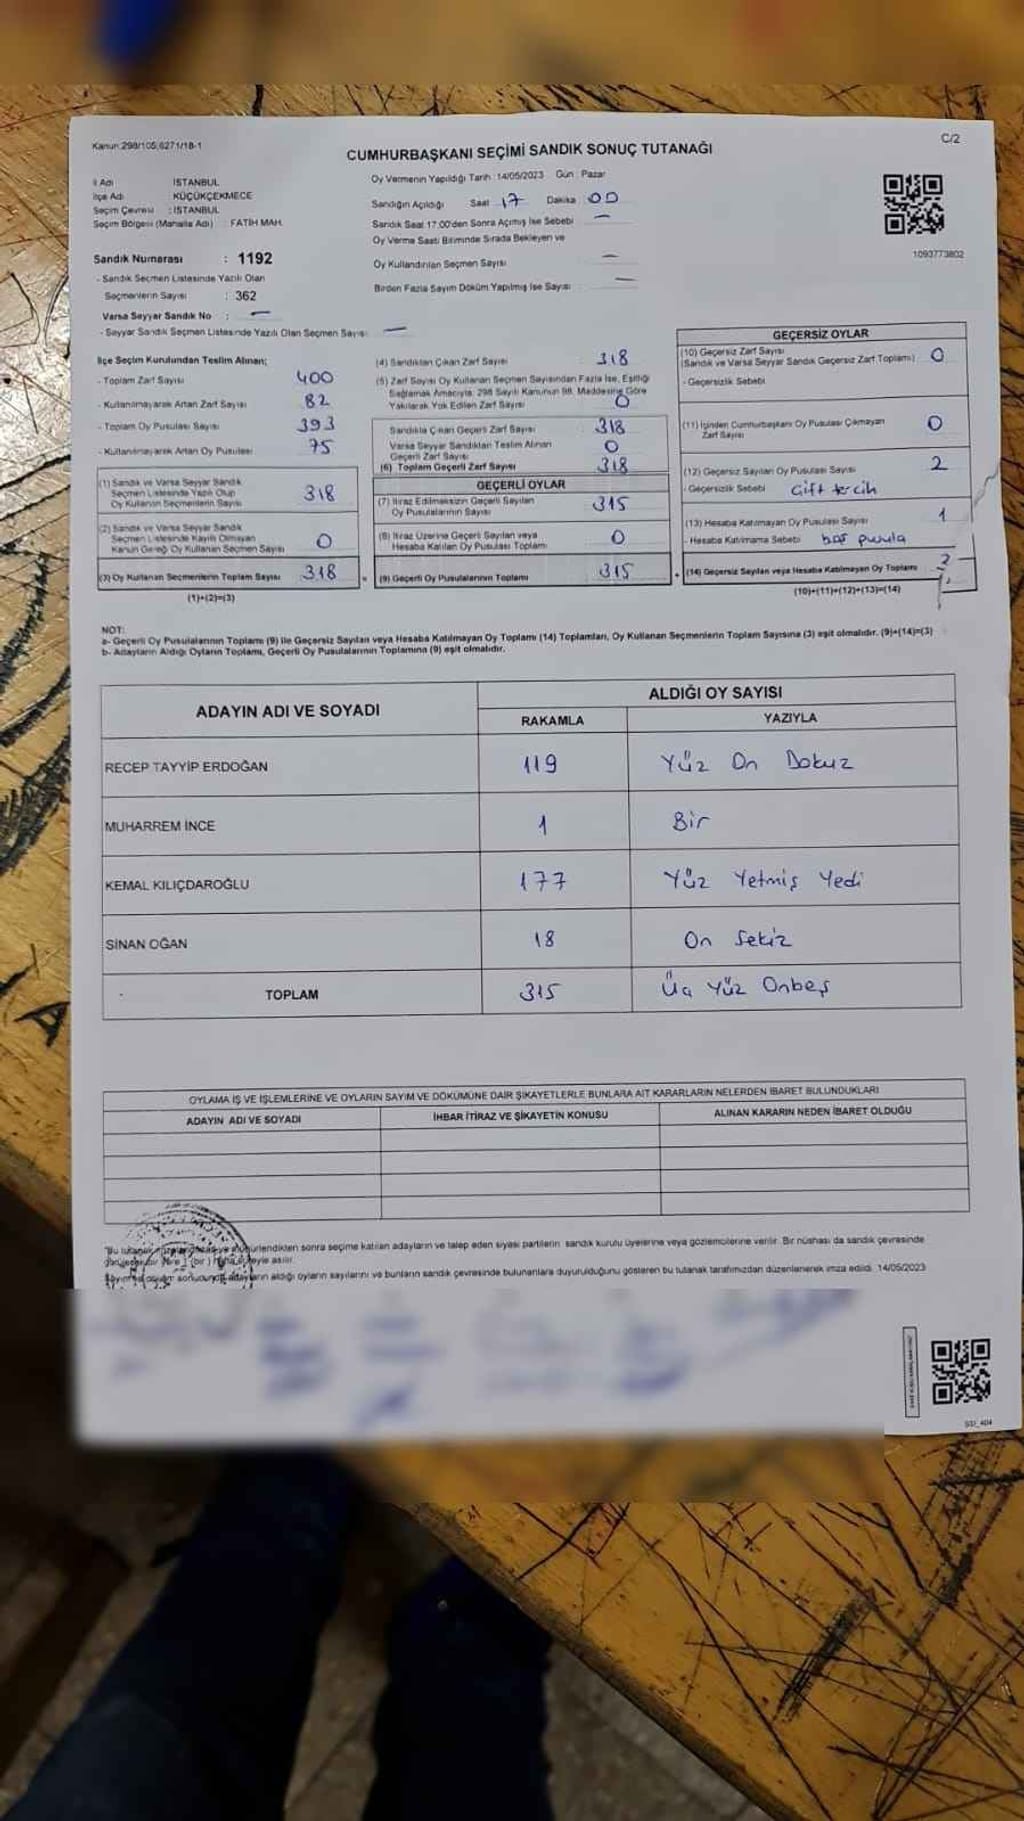 Kanun:298/105,6271/18-1
C/2
CUMHURBAŞKANI SEÇİMİ SANDIK SONUÇ TUTANAĞI
İl Adı İSTANBUL
İlçe Adı KÜÇÜKÇEKMECE
Seçim Çevresi : İSTANBUL
Seçim Bölgesi (Mahalle Adı) : FATİH MAH.
Sandık Numarası : 1192
- Sandık Seçmen Listesinde Yazılı Olan
Seçmenlerin Sayısı : 362
Varsa Seyyar Sandık No : —
- Seyyar Sandık Seçmen Listesinde Yazılı Olan Seçmen Sayısı: —
Oy Vermenin Yapıldığı Tarih :14/05/2023 Gün : Pazar
Sandığın Açıldığı Saat : 17 Dakika : 00
Sandık Saat 17:00'den Sonra Açılmış İse Sebebi : —
Oy Verme Saati Bitiminde Sırada Bekleyen ve
Oy Kullandırılan Seçmen Sayısı : —
Birden Fazla Sayım Döküm Yapılmış İse Sayısı : —
1093773802
İlçe Seçim Kurulundan Teslim Alınan;
- Toplam Zarf Sayısı 400
- Kullanılmayarak Artan Zarf Sayısı 82
- Toplam Oy Pusulası Sayısı 393
- Kullanılmayarak Artan Oy Pusulası 75
(1) Sandık ve Varsa Seyyar Sandık
Seçmen Listesinde Yazılı Olup
Oy Kullanan Seçmenlerin Sayısı 318
(2) Sandık ve Varsa Seyyar Sandık
Seçmen Listesinde Kayıtlı Olmayan
Kanun Gereği Oy Kullanan Seçmen Sayısı 0
(3) Oy Kullanan Seçmenlerin Toplam Sayısı 318
(1)+(2)=(3)
(4) Sandıktan Çıkan Zarf Sayısı : 318
(5) Zarf Sayısı Oy Kullanan Seçmen Sayısından Fazla İse, Eşitliği
Sağlamak Amacıyla; 298 Sayılı Kanunun 98. Maddesine Göre
Yakılarak Yok Edilen Zarf Sayısı : 0
Sandıkta Çıkan Geçerli Zarf Sayısı 318
Varsa Seyyar Sandıktan Teslim Alınan
Geçerli Zarf Sayısı 0
(6) Toplam Geçerli Zarf Sayısı 318
GEÇERLİ OYLAR
(7) İtiraz Edilmeksizin Geçerli Sayılan
Oy Pusulalarının Sayısı 315
(8) İtiraz Üzerine Geçerli Sayılan veya
Hesaba Katılan Oy Pusulası Toplamı 0
= (9) Geçerli Oy Pusulalarının Toplamı 315
GEÇERSİZ OYLAR
(10) Geçersiz Zarf Sayısı
(Sandık ve Varsa Seyyar Sandık Geçersiz Zarf Toplamı) 0
- Geçersizlik Sebebi
(11) İçinden Cumhurbaşkanı Oy Pusulası Çıkmayan
Zarf Sayısı 0
(12) Geçersiz Sayılan Oy Pusulası Sayısı 2
- Geçersizlik Sebebi Çift tercih
(13) Hesaba Katılmayan Oy Pusulası Sayısı 1
- Hesaba Katılmama Sebebi boş pusula
+ (14) Geçersiz Sayılan veya Hesaba Katılmayan Oy Toplamı
(10)+(11)+(12)+(13)=(14)
NOT:
a- Geçerli Oy Pusulalarının Toplamı (9) ile Geçersiz Sayılan veya Hesaba Katılmayan Oy Toplamı (14) Toplamları, Oy Kullanan Seçmenlerin Toplam Sayısına (3) eşit olmalıdır. (9)+(14)=(3)
b- Adayların Aldığı Oyların Toplamı, Geçerli Oy Pusulalarının Toplamına (9) eşit olmalıdır.
ADAYIN ADI VE SOYADI
ALDIĞI OY SAYISI
RAKAMLA YAZIYLA
RECEP TAYYİP ERDOĞAN 119 Yüz On Dokuz
MUHARREM İNCE 1 Bir
KEMAL KILIÇDAROĞLU 177 Yüz Yetmiş Yedi
SİNAN OĞAN 18 On Sekiz
TOPLAM 315 Üç Yüz Onbeş
OYLAMA İŞ VE İŞLEMLERİNE VE OYLARIN SAYIM VE DÖKÜMÜNE DAİR ŞİKAYETLERLE BUNLARA AİT KARARLARIN NELERDEN İBARET BULUNDUKLARI
ADAYIN ADI VE SOYADI İHBAR İTİRAZ VE ŞİKAYETİN KONUSU ALINAN KARARIN NEDEN İBARET OLDUĞU
sonra seçime katılan adayların ve talep eden siyasi partilerin sandık kurulu üyelerine veya gözlemcilerine verilir. Bir nüshası da sandık çevresinde
asılır.
aldığı oyların sayılarını ve bunların sandık çevresinde bulunanlara duyurulduğunu gösteren bu tutanak tarafımızdan düzenlenerek imza edildi. 14/05/2023